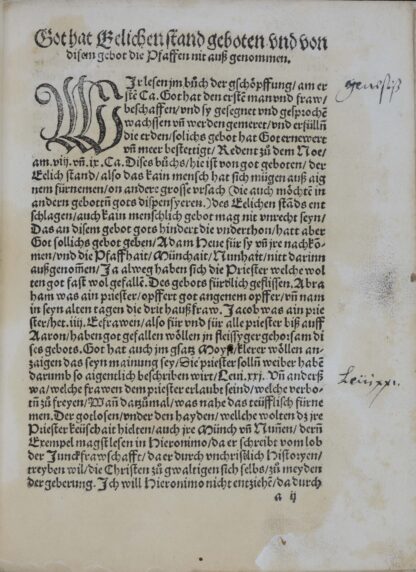 Got hat Eelichen stand geboten vnd von
disem gebot die Pfaffen nit auß genomen.
WIr lesen jm bůch der gschöpffung / am er
stē Ca. Got hat den erstē man vnd fraw /
beschaffen / vnd sy gesegnet vnd gesprochē
wachssen vn̄ werden gemeret / vnd erfülln̄
die erden / solichs gebot hat Got ernewert
vn̄ meer bestettigt / Redent zů dem Noe /
am .viij. vn̄ .ix. Ca. Dises bůchs / hie ist von got geboten / der
Eelich stand / also das kain mensch hat sich mügen auß aig
nem fürnemen / on andere grosse vrsach (die auch möchtē in
andern gebottn̄ gots dispensyeren.) des Eelichen stāds ent
schlagen / auch kain menschlich gebot mag nit vnrecht seyn /
Das an disem gebot gots hindert die vnderthon / hatt aber
Got sollichs gebot geben / Adam Heue für sy vn̄ jre nachkō-
men / vnd die Pfaffhait / Münchait / Nunhait / nit darinn
außgenom̄en / Ja alweg haben sich die Priester welche wol
ten got fast wol gefallē. Des gebots fürdlich geflissen. Abra
ham was ain priester / opffert got angenem opffer / vn̄ nam
in seyn alten tagen die drit hauß fraw. Jacob was ain prie
ster / het .iiij. Eefrawen / also für vnd für alle priester biß auff
Aaron / haben got gefallen wöllen jn fleissyger gehorsam di
ses gebots. Got hat auch jm gsatz Moysi klerer wöllen an-
zaigen das seyn mainung sey / Die priester solln̄ weiber habē
darumb so aigenlich beschriben wirt / Leui .xxi. Vn̄ anderß
wa / welche frawen den priester erlaubt seind / welche verbo-
tn̄ zů freyen / Wañ datzůmal / was nahe das teüfflisch fürne
men. Der gotlosen / vnder den hayden / welche wolten dz jre
Priester keüschait hielten / auch jre Münch vn̄ Nun̄en / dern̄
Exempel magst lesen in Hieronimo / da er schreibt vom lob
der Junckfrawschafft / da er durch vnchristlich Historyen /
treyben wil / die Christen zů gwaltigen sich selbs / zů meyden
der geberung. Ich will Hieronimo nicht entziehē / da durch
a ij
Leui xxi.